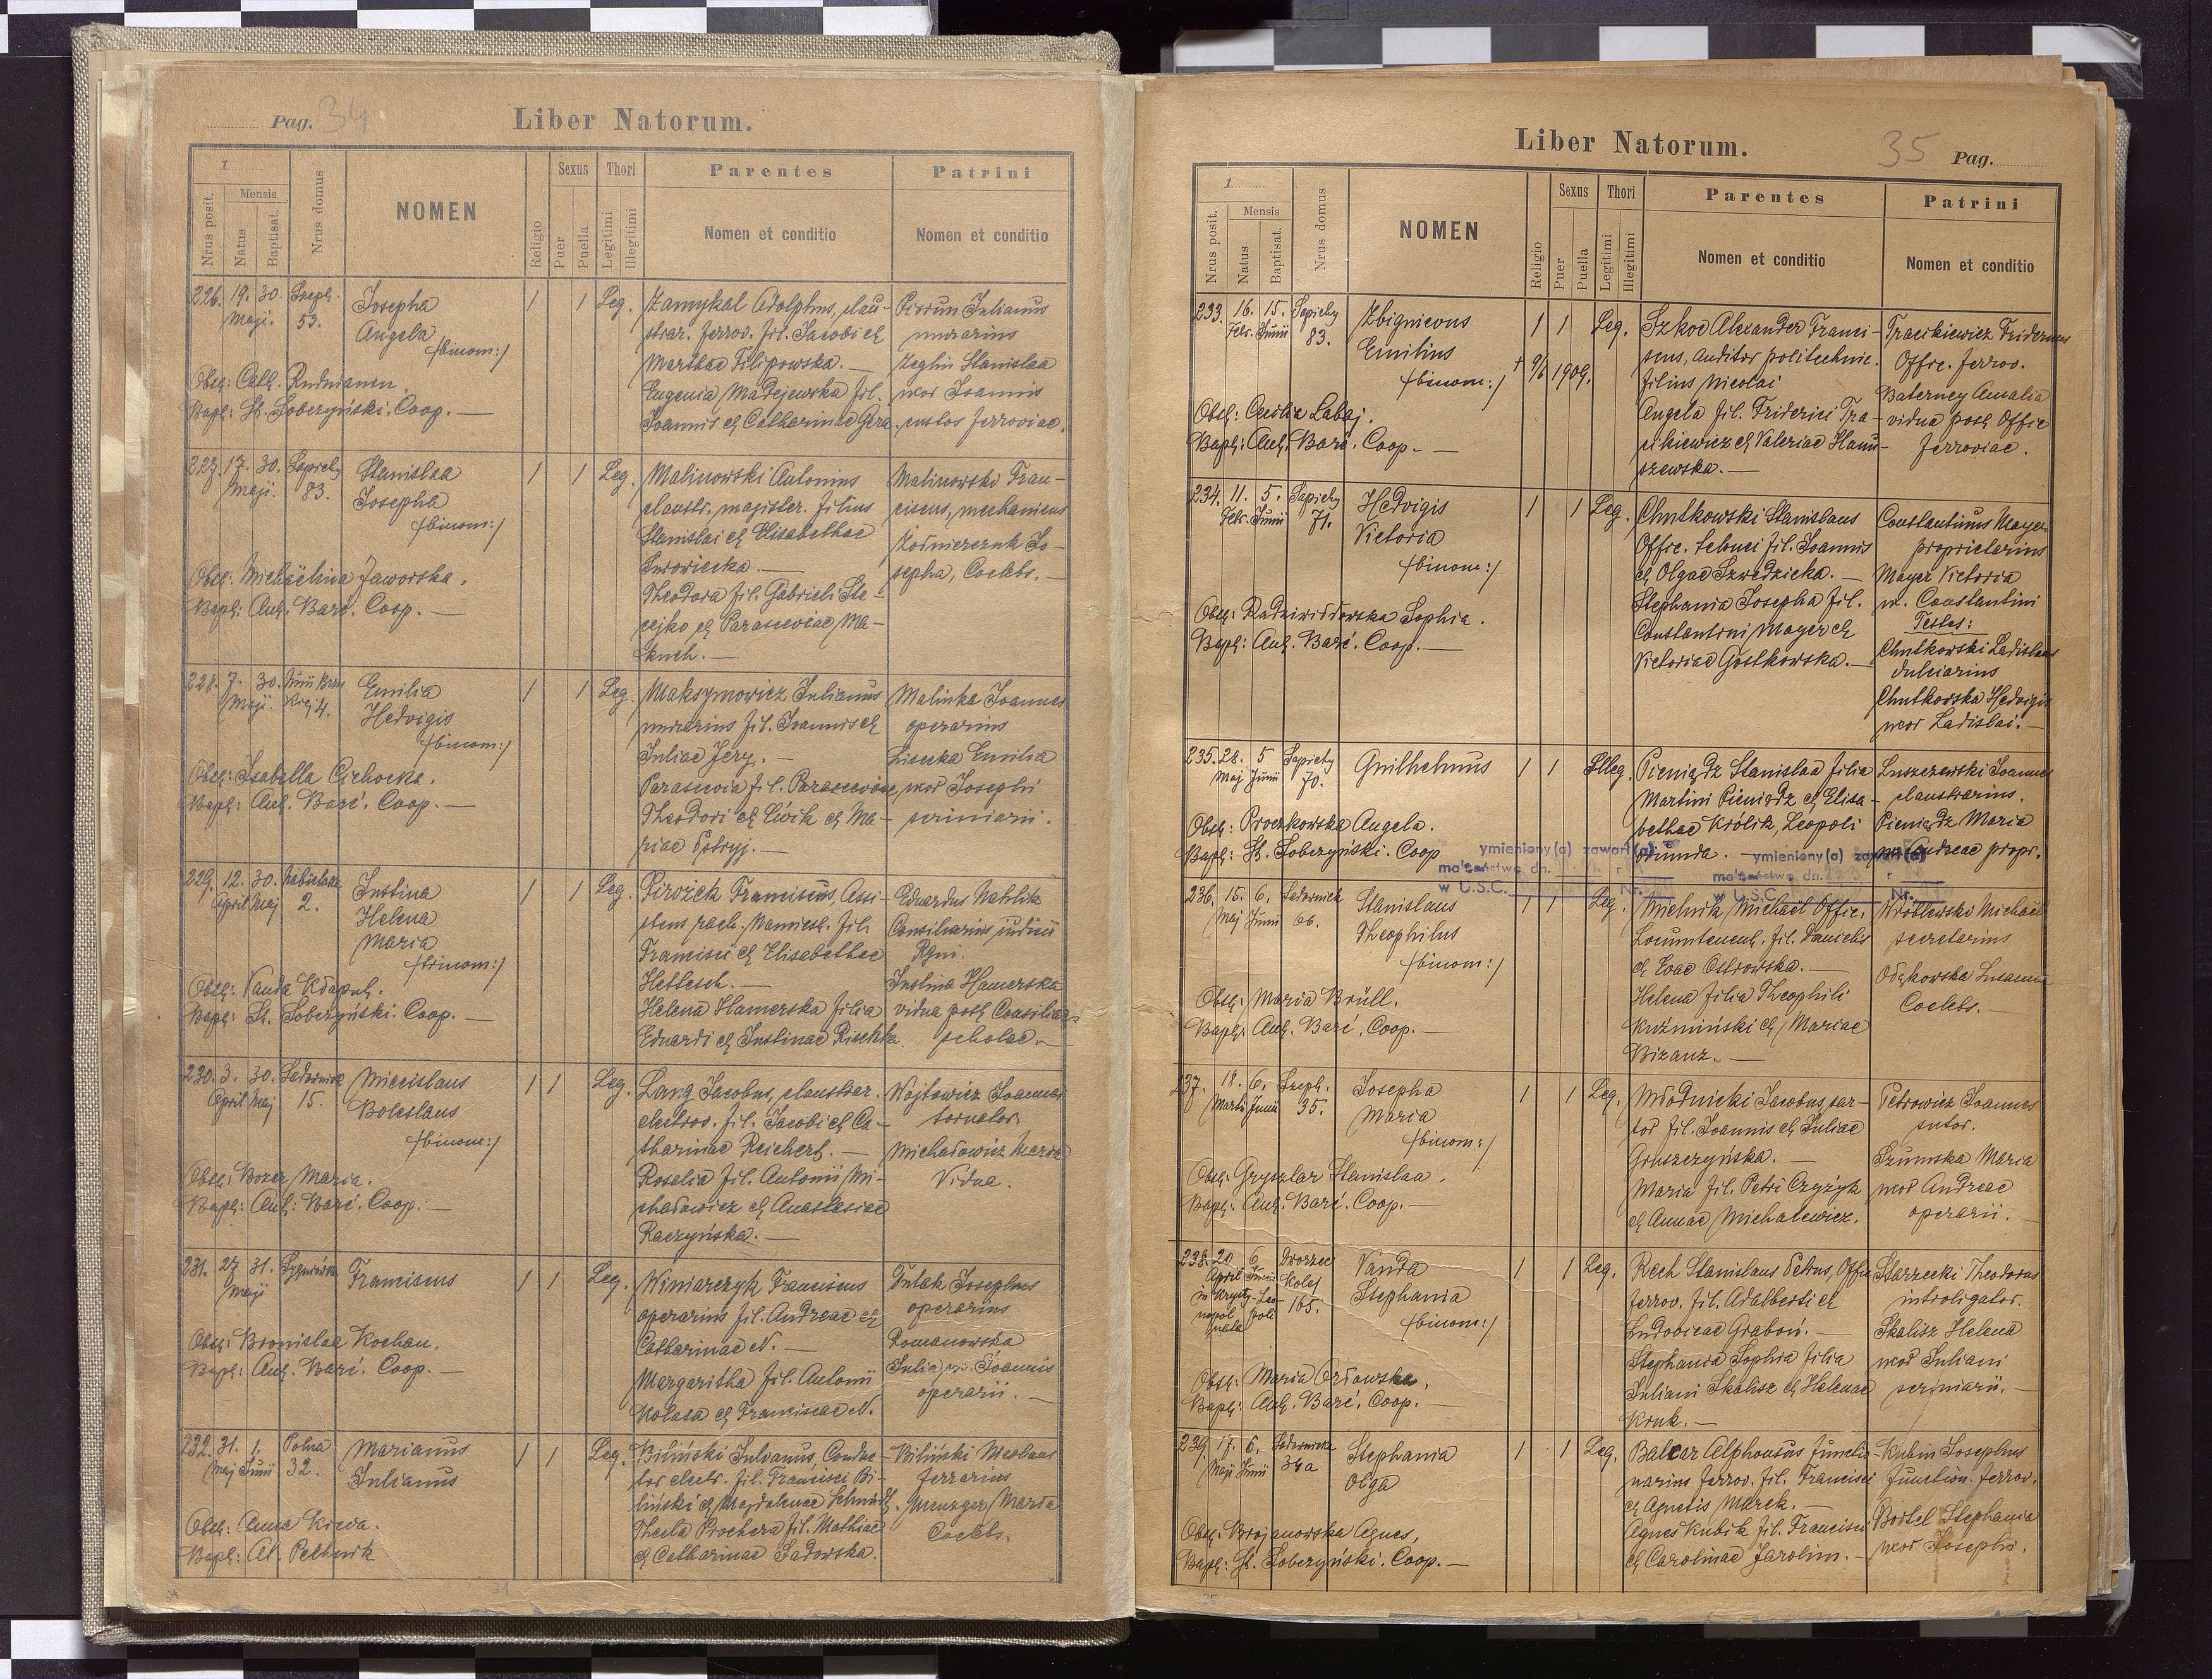 Pag. 34
Liber Natorum.
1
Nrus posit.
Mensis
Natus
Baptisat.
Nrus domus
NOMEN
Religio
Sexus
Puer
Puella
Thori
Legitimi
Illegitimi
Parentes
Nomen et conditio
Patrini
Nomen et conditio
226. 19. 30. Szeph.
Maji. 53.
Josepha
Angela
/:binom:/
1 1 Leg.
Zamykal Adolphus, clau-
strar. ferrov. fil. Jacobi et
Marthae Filipowska. —
Eugenia Madejewska fil.
Joannis et Catharinae Gera
Piorun Julianus
murarius
Zeglin Stanislaa
uxor Joannis
custos ferroviae.
Obst: Cath. Rudnianyn.
Bapt: St. Sobczyński. Coop. —
227. 17. 30. Sapiehy
Maji. 83.
Stanislaa
Josepha
/:binom:/
1 1 Leg.
Malinowski Antonius
claustr. magister. filius
Stanislai et Elisabethae
Surowiecka. —
Theodora fil. Gabrieli Ste-
cejko et Parascevae Ma-
kuch. —
Malinowski Fran-
ciscus, mechanicus
Żołnierczuk Jo-
sepha, Coelebs. —
Obst: Michaëlina Jaworska.
Bapt: Ant. Baré. Coop. —
228. 7. 30.
Maji. 4.
Emilia
Hedvigis
/:binom:/
1 1 Leg.
Maksymowicz Julianus
murarius fil. Joannis et
Juliae Jery. —
Parascevia fil. Parasceviae,
Theodori et Ćwik et Ma-
riae Potryj. —
Malinka Joannes
operarius
Lisecka Emilia
uxor Josephi
scriniarii.
Obst: Isabella Cichocka.
Bapt: Ant. Baré. Coop. —
229. 12. 30. Nabielaka
April Maj 2.
Justina
Helena
Maria
/:trinom:/
1 1 Leg.
Pirożek Franciscus, Assi-
stens rach. Namiest. fil.
Francisci et Elisabethae
Hettesch. —
Helena Hamerska filia
Eduardi et Justinae Rischka.
Eduardus Nahlik
Consiliarius judicii
Rgni.
Justina Hamerska
vidua post Consiliar.
scholae. —
Obst: Vanda Kłaput.
Bapt: St. Sobczyński. Coop. —
230. 3. 30. Sadownicka
April Maj 15.
Miecislaus
Boleslaus
/:binom:/
1 1 Leg.
Lang Jacobus, claustrar.
electrov. fil. Jacobi et Ca-
tharinae Reichert. —
Rosalia fil. Antonii Mi-
chałowicz et Anastasiae
Raczyńska. —
Wojtowicz Joannes
tornator.
Michałowicz Maria
Vidua.
Obst: Bozer Maria.
Bapt: Ant. Baré. Coop. —
231. 27 31. Sygniówka
Maji
Franciscus
1 1 Leg.
Winiarczyk Franciscus
operarius fil. Andreae et
Catharinae N. —
Margaritha fil. Antonii
Kolasa et Franciscae N.
Tutak Josephus
operarius
Romanowska
Julia ux. Joannis
operarii. —
Obst: Bronislaa Kochan.
Bapt: Ant. Baré. Coop. —
232. 31. 1. Polna
Maj Junii 32.
Marianus
Julianus
1 1 Leg.
Biliński Sylvanus, Conduc-
tor electr. fil. Francisci Bi-
liński et Magdalenae Schmidt.
Thecla Prochera fil. Mathiae
et Catharinae Sadowska.
Biliński Wenceslaus
ferrarius
Gmenzger Maria
Coelebs.
Obst: Anna Kiwa.
Bapt: At. Pelhnik
31
Liber Natorum.
35 Pag.
1
Nrus posit.
Mensis
Natus
Baptisat.
Nrus domus
NOMEN
Religio
Sexus
Puer
Puella
Thori
Legitimi
Illegitimi
Parentes
Nomen et conditio
Patrini
Nomen et conditio
233. 16. 15. Sapiehy
Febr. Junii 83.
Zbignievus
Emilius
/:binom:/
1 1 Leg.
† 9/6 1909.
Szkoc Alexander Franci-
scus, auditor politechnic.
filius Nicolai
Angela fil. Friderici Tra-
cikiewicz et Valeriae Hanu-
szewska. —
Tracikiewicz Fridericus
Offic. ferrov.
Baterney Amalia
vidua post Offic
ferroviae.
Obst: Cecilia Labaj.
Bapt: Ant. Baré. Coop. —
234. 11. 5. Sapiehy
Febr. Junii 71.
Hedvigis
Victoria
/:binom:/
1 1 Leg.
Chutkowski Stanislaus
Offic. telonei fil. Joannis
et Olgae Szwedzicka. —
Stephania Josepha fil.
Constantini Mayer et
Victoriae Gostkowska. —
Constantinus Mayer
proprietarius
Mayer Victoria
u. Constantini
Testes:
Chutkowski Ladislaus
dulciarius
Chutkowska Hedvigis
uxor Ladislai. —
Obst: Radziwiłłowska Sophia.
Bapt: Ant. Baré. Coop. —
235. 28. 5 Sapiehy
Maj Junii 70.
Guilhelmus
1 1 Illeg.
Pieniądz Stanislaa filia
Martini Pieniądz et Elisa-
bethae Królik, Leopoli
oriunda. —
Luszczewski Joannes
claustrarius.
Pieniądz Maria
ux. Andreae propr.
Obst: Proczkowska Angela.
Bapt: St. Sobczyński. Coop
ymieniony(a) zawarł(a)
małżeństwo dn. r
w U.S.C. Nr.
ymieniony(a) zawarł(a)
małżeństwo dn. r
w U.S.C. Nr.
236. 15. 6. Sadownick
Maj Junii 66.
Stanislaus
Theophilus
/:binom:/
1 1 Leg.
Mielnik Michaël Offic.
Locumtenent. fil. Danielis
et Evae Ostrowska. —
Helena filia Theophili
Kuźmiński et Mariae
Bizanz. —
Wróblewski Michaël
secretarius
Odękowska Susanna
Coelebs. —
Obst: Maria Brüll.
Bapt: Ant. Baré. Coop. —
237. 18. 6. Szeph.
Martii Junii 35.
Josepha
Maria
/:binom:/
1 1 Leg.
Młodnicki Jacobus, sar-
tor fil. Joannis et Juliae
Gruszczyńska. —
Maria fil. Petri Czyżyk
et Annae Michalewicz.
Petrowicz Joannes
sutor.
Szumska Maria
uxor Andreae
operarii. —
Obst: Gryszlar Stanislaa.
Bapt: Ant. Baré. Coop. —
238. 20 6 Dworzec
April Junii Kolej
165.
Vanda
Stephania
/:binom:/
1 1 Leg.
Rech Stanislaus Petrus, Offic
ferrov. fil. Adalberti et
Ludovicae Graboń. —
Stephania Sophia filia
Juliani Skalisz et Helenae
Kruk. —
Starzecki Theodorus
introligator.
Skalisz Helena
uxor Juliani
scriniarii. —
Obst: Maria Orłowska.
Bapt: Ant. Baré. Coop. —
239. 17. 6. Sadownicka
Maji Junii 34a
Stephania
Olga
1 1 Leg.
Balcar Alphonsus functio-
narius ferrov. fil. Francisci
et Agnetis Marek. —
Agnes Kubik fil. Francisci
et Carolinae Jarolim. —
Kubin Josephus
function. ferrov.
Bortel Stephania
uxor Josephi.
Obst: Brojanowska Agnes,
Bapt: St. Sobczyński. Coop. —
35